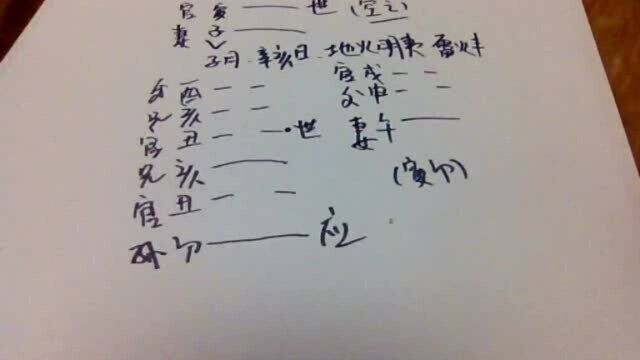 官寅 世 (空亡)
妻子
子月 辛亥日 地火明夷 雷火丰
父酉 官戌
兄亥 父申
官丑 世 妻午
兄亥 (寅卯)
官丑
孙卯 应